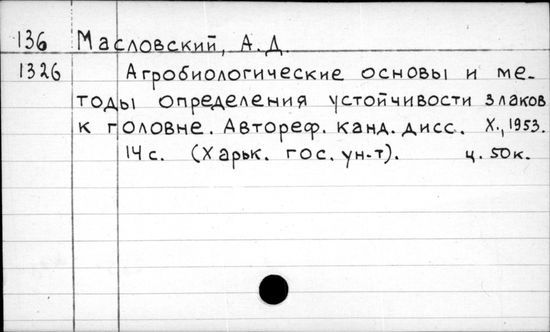 136 Масловский, А.Д.
1326 Агробиологические основы и ме-
тоды определения устойчивости злаков
к головне. Автореф. канд. дисс. Х., 1953.
14 с. (Харьк. гос. ун-т). ц. 50к.